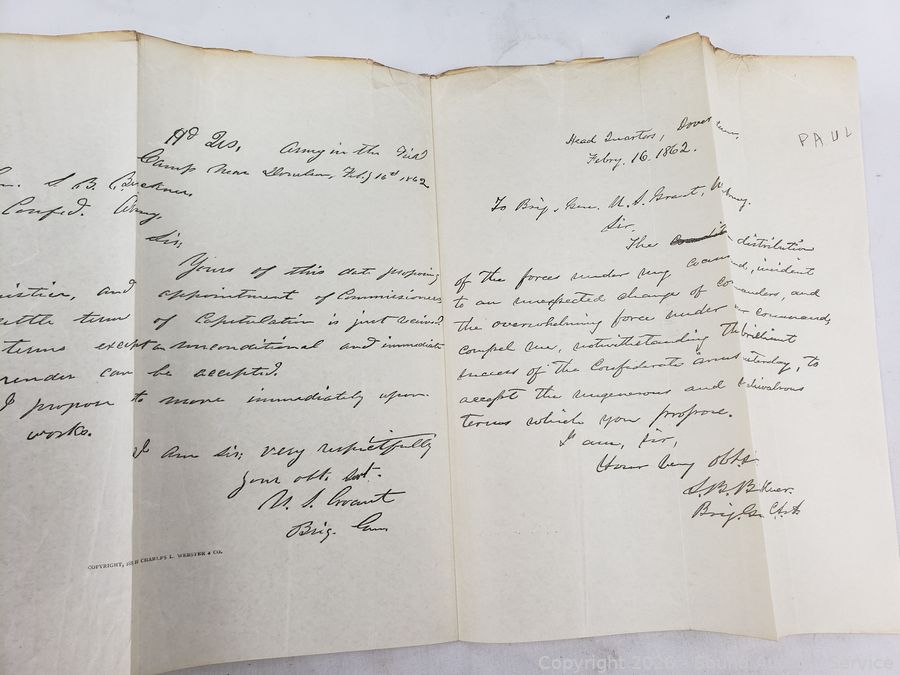 Hd Qrs, Army in the Field
Camp Near Donelson, Feby 16th 1862
Gen. S. B. Buckner,
Confed. Army,
Sir;
Yours of this date proposing
Armistice, and appointment of Commissioners
settle terms of Capitulation is just received.
terms except an unconditional and immediate
surrender can be accepted.
I propose to move immediately upon
works.
I am Sir; very respectfully
your obt. svt.
U. S. Grant
Brig. Gen
COPYRIGHT, CHARLES L. WEBSTER & CO.
Head Quarters, Dover
Febry. 16. 1862.
To Brig. Gen. U. S. Grant, U. S. Army.
Sir,
The distribution
of the forces under my command, incident
to an unexpected change of commanders, and
the overwhelming force under your command,
compel me, notwithstanding the brilliant
success of the Confederate arms yesterday, to
accept the ungenerous and unchivalrous
terms which you propose.
I am, Sir,
Your very obt. s
S. B. Buckner.
Brig. Gen. C.S.A.
PAUL
Copyright 2026 - Sound Auction Service